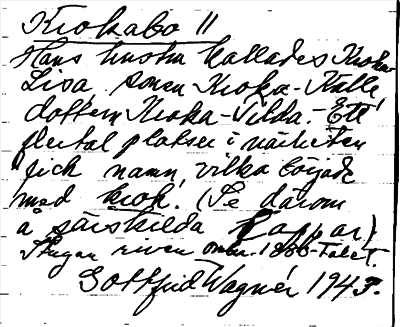 Krokabo II
Hans hustru kallades Kroka-
Lisa, sonen Kroka-Kalle
dottern Kroka-Tilda. - Ett
flertal platser i närheten
fick namn, vilka började
med krok! (Se därom
å särskilda lappar)
Stugan riven omkr. 1860-talet.
Gottfrid Wagnér 1943.